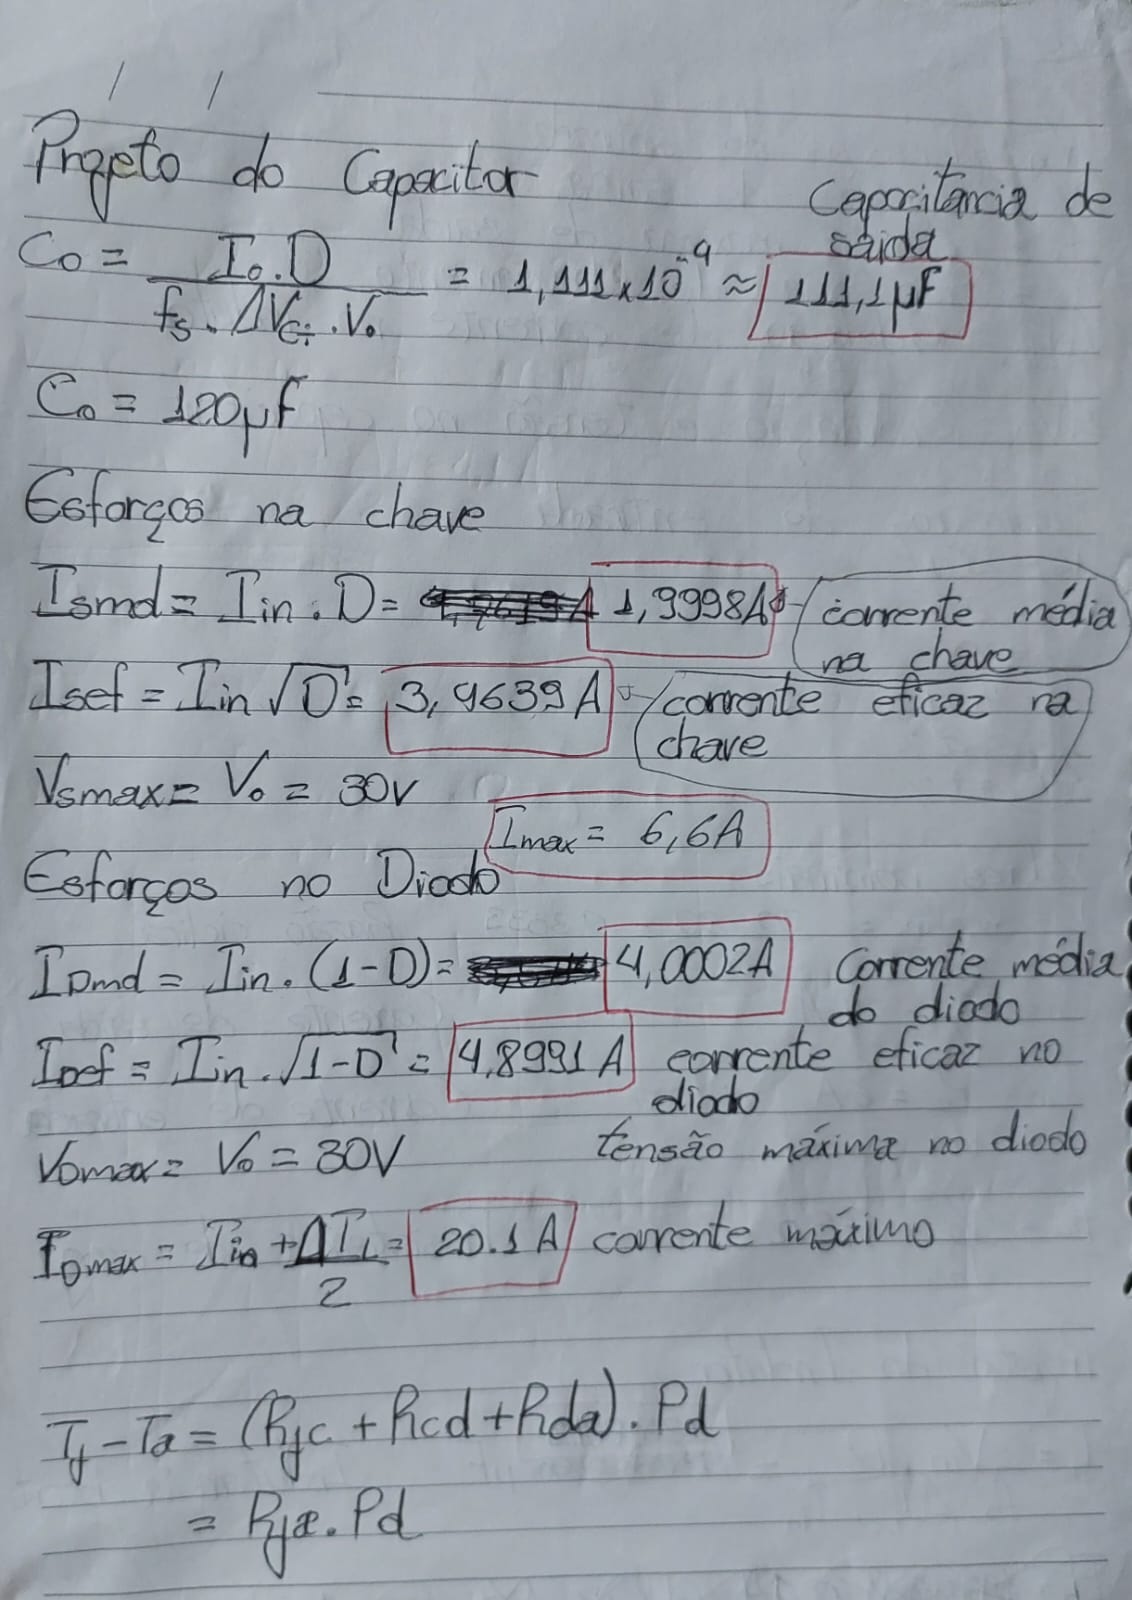 / /
Projeto do Capacitor
Capacitância de saída
Co = Io.D / fs.ΔVc.Vo = 1,111x10^-4 ≈ 111,1μF
Co = 120μF
Esforços na chave
Ismd = Iin.D = 1,9998A corrente média na chave
Isef = Iin√D = 3,4639A corrente eficaz na chave
Vsmax = Vo = 30V
Imax = 6,6A
Esforços no Diodo
IDmd = Iin.(1-D) = 4,0002A Corrente média do diodo
IDef = Iin.√1-D = 4,8991A corrente eficaz no diodo
VDmax = Vo = 30V tensão máxima no diodo
IDmax = Iin + ΔIL / 2 = 20.1A corrente máximo
Tj - Ta = (Rjc + Rcd + Rda).Pd
= Rja.Pd